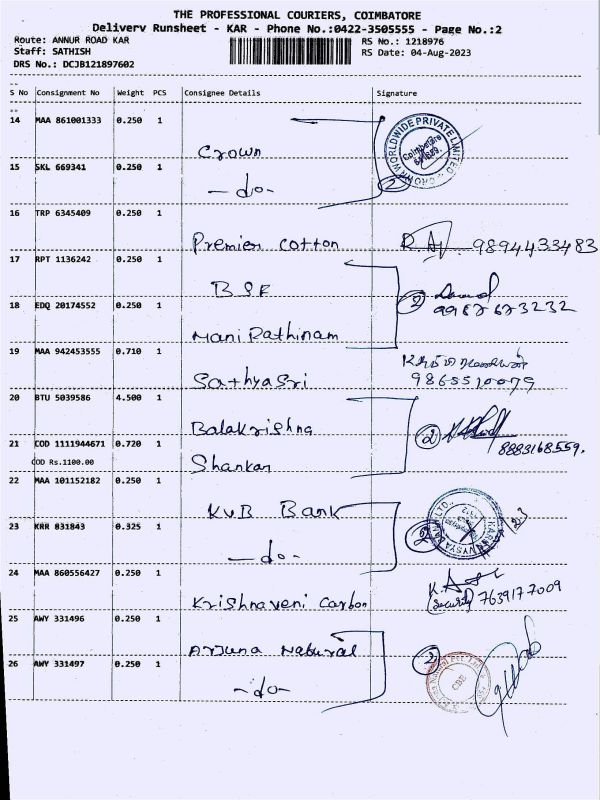 THE PROFESSIONAL COURIERS, COIMBATORE
Delivery Runsheet - KAR - Phone No.:0422-3505555 - Page No.:2
Route: ANNUR ROAD KAR
RS No.: 1218976
Staff: SATHISH
RS Date: 04-Aug-2023
DRS No.: DCJB121897602
S No Consignment No Weight PCS Consignee Details Signature
14 MAA 861001333 0.250 1
Crown
15 SKL 669341 0.250 1
-do-
2
16 TRP 6345409 0.250 1
Premier Cotton 9894433483
17 RPT 1136242 0.250 1
BSF
2
18 EDQ 20174552 0.250 1
Mani Rathinam
19 MAA 942453555 0.710 1
Sathyasri 9865510079
20 BTU 5039586 4.500 1
Balakrishna
2
8883168559.
21 COD 1111944671 0.720 1
COD Rs.1100.00
Shankar
22 MAA 101152182 0.250 1
KVB Bank
23 KRR 831843 0.325 1
-do-
2
24 MAA 860556427 0.250 1
Krishnaveni Carbon
(Security) 7639177009
25 AWY 331496 0.250 1
Arjuna Natural
2
26 AWY 331497 0.250 1
-do-
CBE